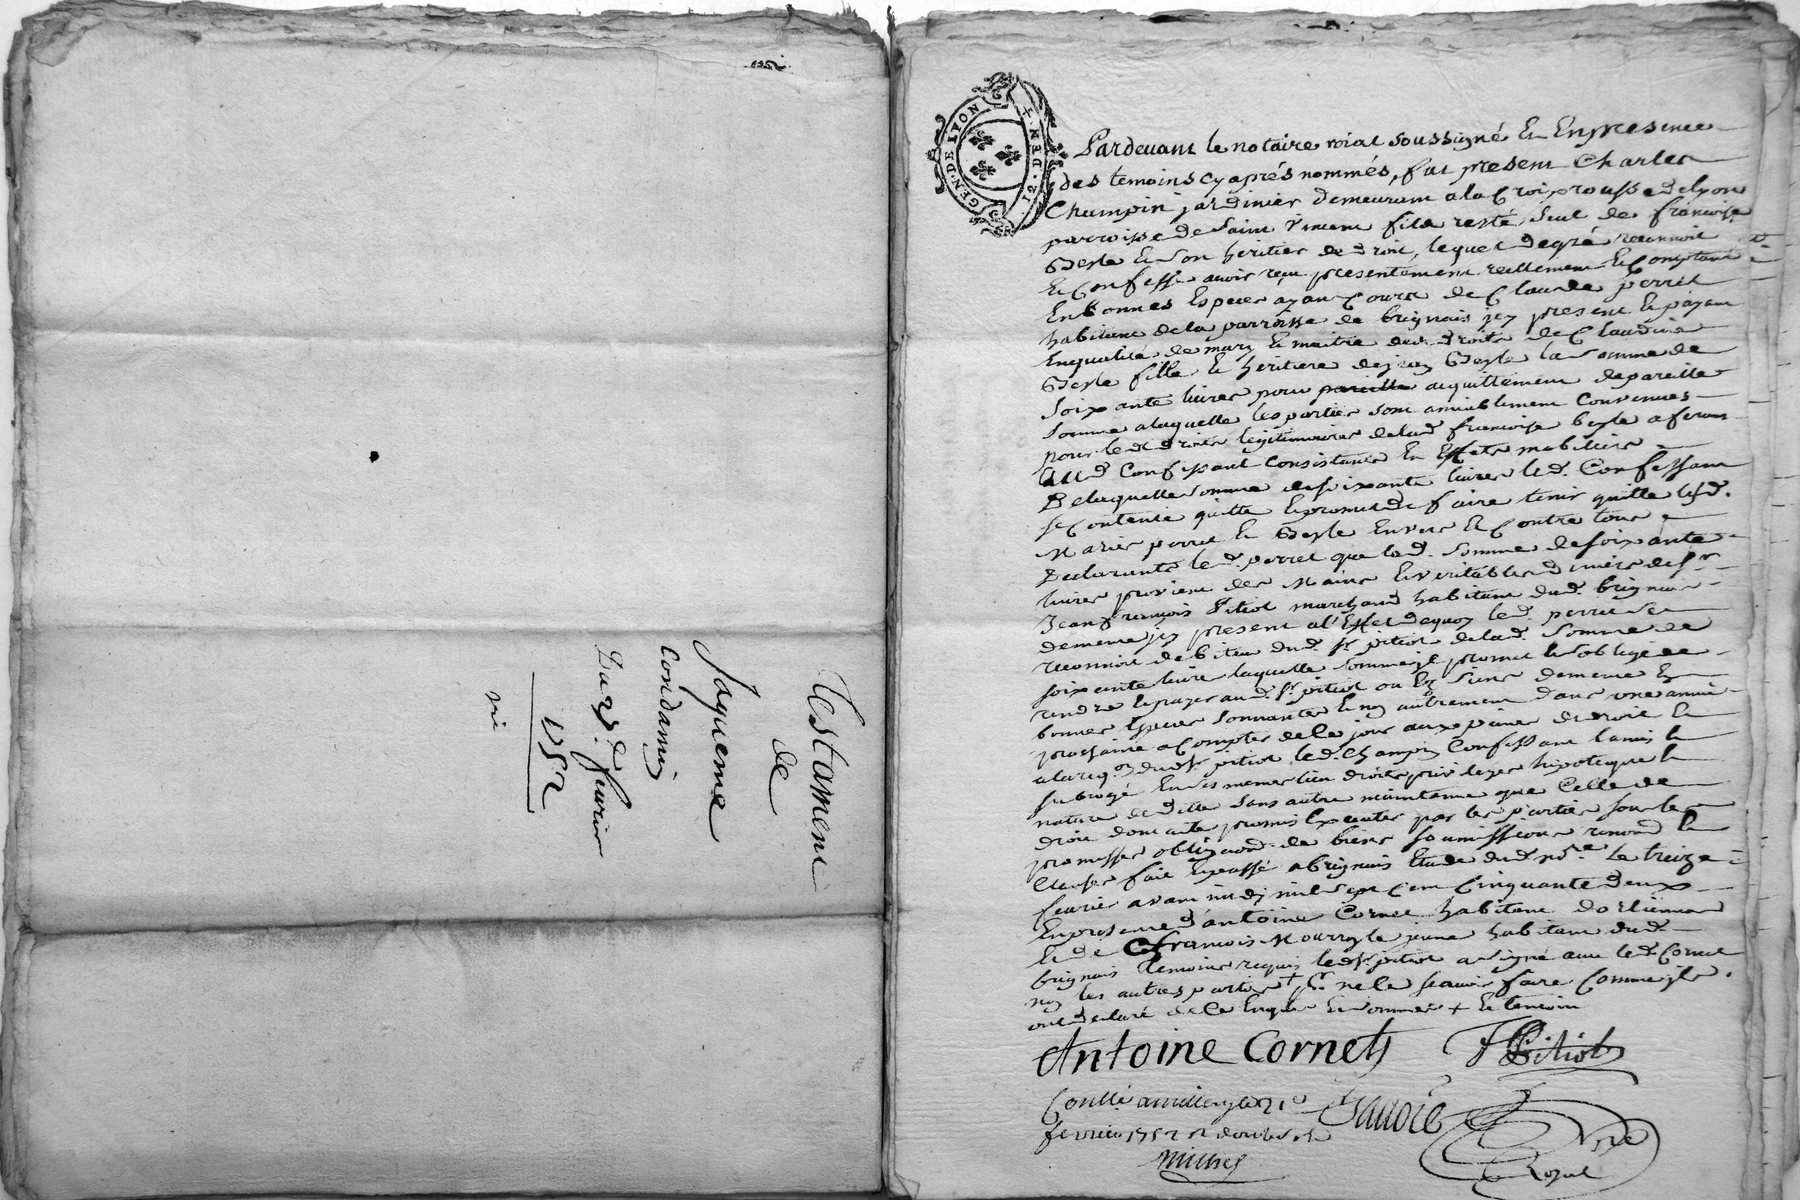 Testament
de
Jaqueme
Condamin
Du 2e. fevrier
1752
GEN·DE·LYON
12·DEN·
Pardevant le notaire roial soussigné et En presence
des temoins cy aprés nommés, fut present Charles
Champin jardinier demeurant a la Croix rousse de lyon
parroisse de Saint Vincent fils resté Seul de francoise
Beste et Son heritier de droit, lequel de gré reconnoit
et Confesse avoir reçu presentement reellement et Comptant
En bonnes Especes ayant Cours de Claude perret
habitant de la parroisse de brignais jcy present et payant
En qualité de mary et maitre des droits de Claudine
Beste fille et heritiere de jean Beste la Somme de
Soixante livres pour pareille acquittement de pareille
Somme a laquelle les parties sont amiablement Convenues
pour les droits legitimaires de lad. francoise beste
aud Confessant Consistants En Effets mobiliers
De laquelle somme de soixante livres led. Confessant
Se Contente quitte et promet de faire tenir quitte lesd.
Mariés perret et Beste Envers et Contre tous
Declarant led. perret que lad. Somme de soixante
livres provient des Mains et veritables deniers de Sr
Jean francois Pitiot marchand habitant dud. brignais
de meme jcy present a l'Effet de quoy led. perret Se
reconnoit debiteur dud. Sr. pitiot de lad. Somme de
soixante livres laquelle Somme jl promet et s'oblige de
rendre et payer aud. Sr. pitiot ou Es Siens de meme En
bonnes Especes Sonnantes et non autrement dans une année
prochaine a Compter de Ce jour aux peines de droit et
a la req.on dud Sr pitiot led. Champin Confessant l'a mis et
subrogé En Ses memes lieu droits privileges hipoteque et
nature de dette Sans autre maintenue que Celle de
droit dont acte promis Executer par les parties sous les
promesses obligaons. de biens Soumissions renonons et
Clauses fait et passé a brignais Etude dud. nore. Le treize
fevrier avant midy mil Sept Cent Cinquante deux
En presence d'antoine Cornet habitant d'orlienas
et de francois Mourryle jeune habitant dud.
brignais temoins requis led Sr. pitiot a signé avec led. Cornet
non les autres parties + pr. ne le Scavoir faire Comme jls
ont declaré de Ce Enquis et Sommés + et temoin
Antoine Cornet
Pitiot
Conllé a millery le 21e
fevrier 1752 Rt douze sols
Milhet
Savoie
Nore
Royal